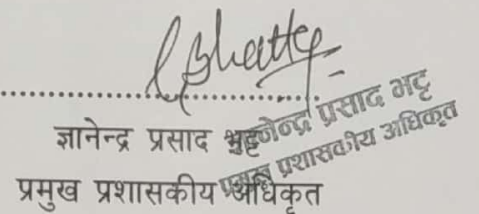 Bhatta
ज्ञानेन्द्र प्रसाद भट्ट
प्रमुख प्रशासकीय अधिकृत
ज्ञानेन्द्र प्रसाद भट्ट
प्रमुख प्रशासकीय अधिकृत